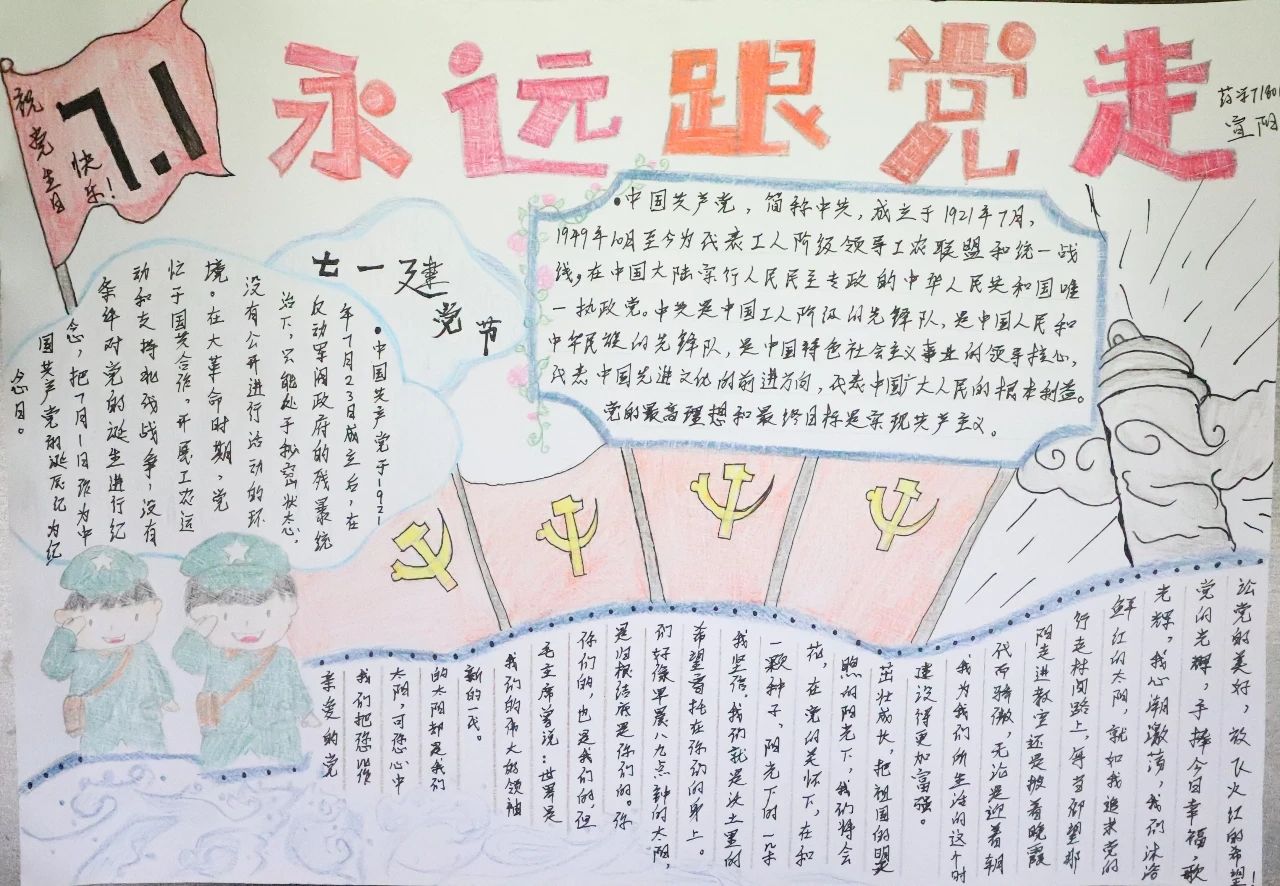 7.1
祝党生日
快乐!
永远跟党走
宣阳
七一建党节
•中国共产党,简称中共,成立于1921年7月,
1949年10月至今为代表工人阶级领导工农联盟和统一战
线,在中国大陆实行人民民主专政的中华人民共和国唯
一执政党。中共是中国工人阶级的先锋队,是中国人民和
中华民族的先锋队,是中国特色社会主义事业的领导核心,
代表中国先进文化的前进方向,代表中国广大人民的根本利益。
党的最高理想和最终目标是实现共产主义。
•中国共产党于1921
年7月23日成立后,在
反动军阀政府的残暴统
治下,只能处于秘密状态,
没有公开进行活动的环
境。在大革命时期,党
忙于国共合作,开展工农运
动和支持北伐战争,没有
条件对党的诞生进行纪
念,把7月1日改为中
国共产党的诞辰纪为纪
念日。
亲爱的党
我们把您比作
太阳,可您心中
的太阳却是我们
新的一代。
我们的伟大的领袖
毛主席曾说:世界是
你们的,也是我们的,但
是归根结底是你们的。你
们好像早晨八九点钟的太阳,
希望寄托在你们的身上。
我坚信,我们就是沃土里的
一颗种子,阳光下的一朵
花,在党的关怀下,在和
煦的阳光下,我们将会
茁壮成长,把祖国的明天
建设得更加富强。
我为我们所生活的这个时
代而骄傲,无论是迎着朝
阳走进教室还是披着晚霞
行走林间路上,每当仰望那
鲜红的太阳,就如我追求党的
光辉,我心潮激荡,我们沐浴
党的光辉,手捧今日幸福,歌
讼党的美好,放飞火红的希望!